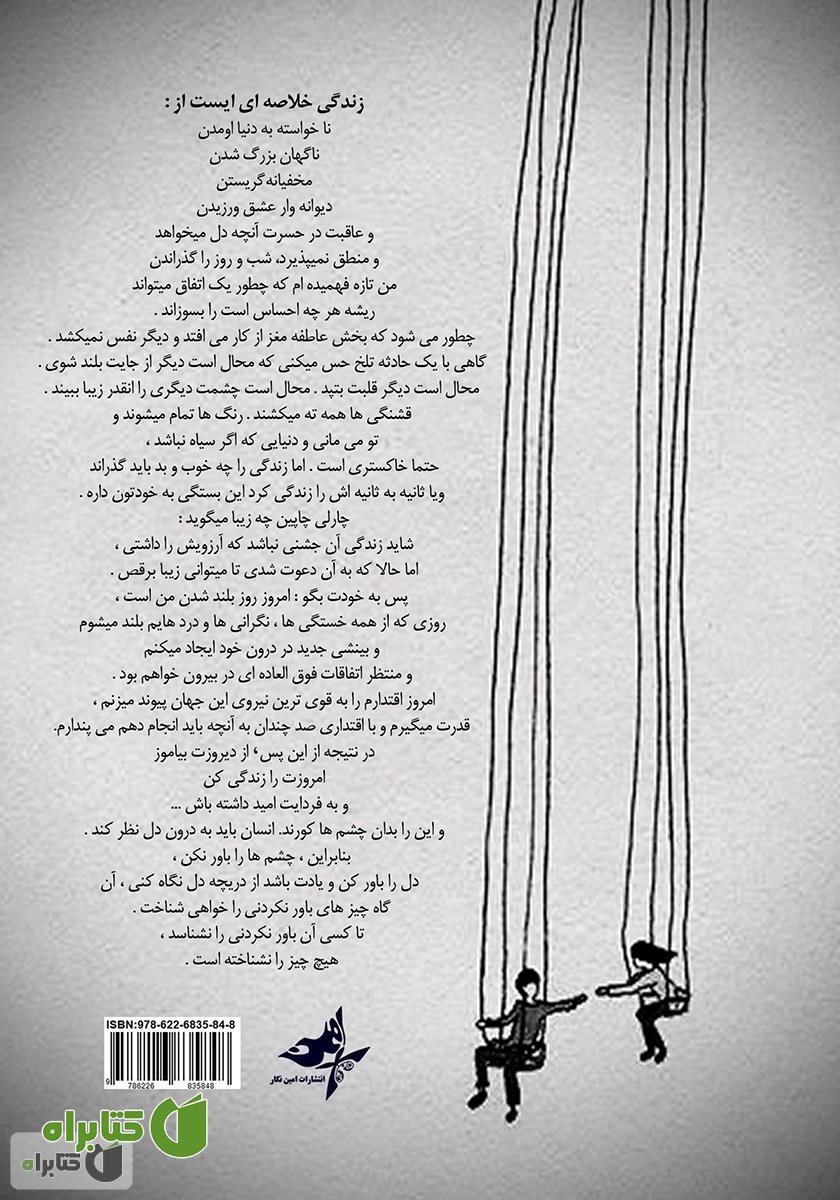 زندگی خلاصه ای ایست از :
نا خواسته به دنیا اومدن
ناگهان بزرگ شدن
مخفیانه گریستن
دیوانه وار عشق ورزیدن
و عاقبت در حسرت آنچه دل میخواهد
و منطق نمیپذیرد، شب و روز را گذراندن
من تازه فهمیده ام که چطور یک اتفاق میتواند
ریشه هر چه احساس است را بسوزاند .
چطور می شود که بخش عاطفه مغز از کار می افتد و دیگر نفس نمیکشد .
گاهی با یک حادثه تلخ حس میکنی که محال است دیگر از جایت بلند شوی .
محال است دیگر قلبت بتپد . محال است چشمت دیگری را انقدر زیبا ببیند .
قشنگی ها همه ته میکشند . رنگ ها تمام میشوند و
تو می مانی و دنیایی که اگر سیاه نباشد ،
حتما خاکستری است . اما زندگی را چه خوب و بد باید گذراند
ویا ثانیه به ثانیه اش را زندگی کرد این بستگی به خودتون داره .
چارلی چاپین چه زیبا میگوید :
شاید زندگی آن جشنی نباشد که آرزویش را داشتی ،
اما حالا که به آن دعوت شدی تا میتوانی زیبا برقص .
پس به خودت بگو : امروز روز بلند شدن من است ،
روزی که از همه خستگی ها ، نگرانی ها و درد هایم بلند میشوم
و بینشی جدید در درون خود ایجاد میکنم
و منتظر اتفاقات فوق العاده ای در بیرون خواهم بود .
امروز اقتدارم را به قوی ترین نیروی این جهان پیوند میزنم ،
قدرت میگیرم و با اقتداری صد چندان به آنچه باید انجام دهم می پندارم.
در نتیجه از این پس، از دیروزت بیاموز
امروزت را زندگی کن
و به فردایت امید داشته باش ...
و این را بدان چشم ها کورند. انسان باید به درون دل نظر کند .
بنابراین ، چشم ها را باور نکن ،
دل را باور کن و یادت باشد از دریچه دل نگاه کنی ، آن
گاه چیز های باور نکردنی را خواهی شناخت .
تا کسی آن باور نکردنی را نشناسد ،
هیچ چیز را نشناخته است .
ISBN:978-622-6835-84-8
9 786226 835848
انتشارات امین نگار
کتابراه
کتابراه